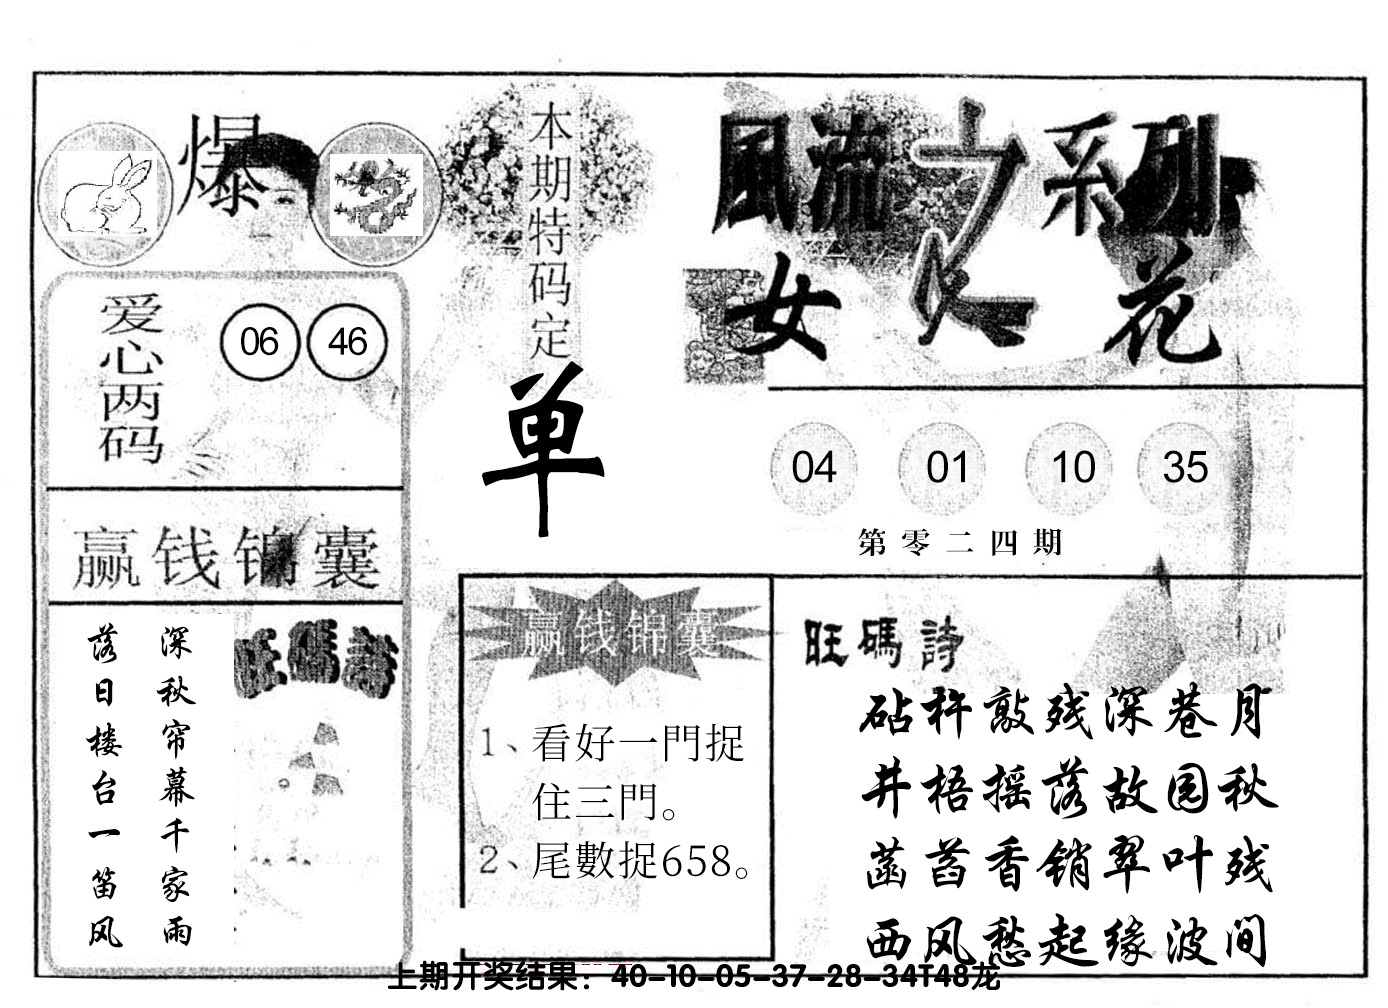 爆
本期特码定
单
風流之系列
女人花
爱心两码
06 46
04 01 10 35
第零二四期
赢钱锦囊
深秋帘幕千家雨
落日楼台一笛风
旺碼詩
赢钱锦囊
1、看好一門捉
住三門。
2、尾數捉658。
旺碼詩
砧杵敲残深巷月
井梧摇落故园秋
菡萏香销翠叶残
西风愁起缘波间
上期开奖结果：40-10-05-37-28-34T48龙